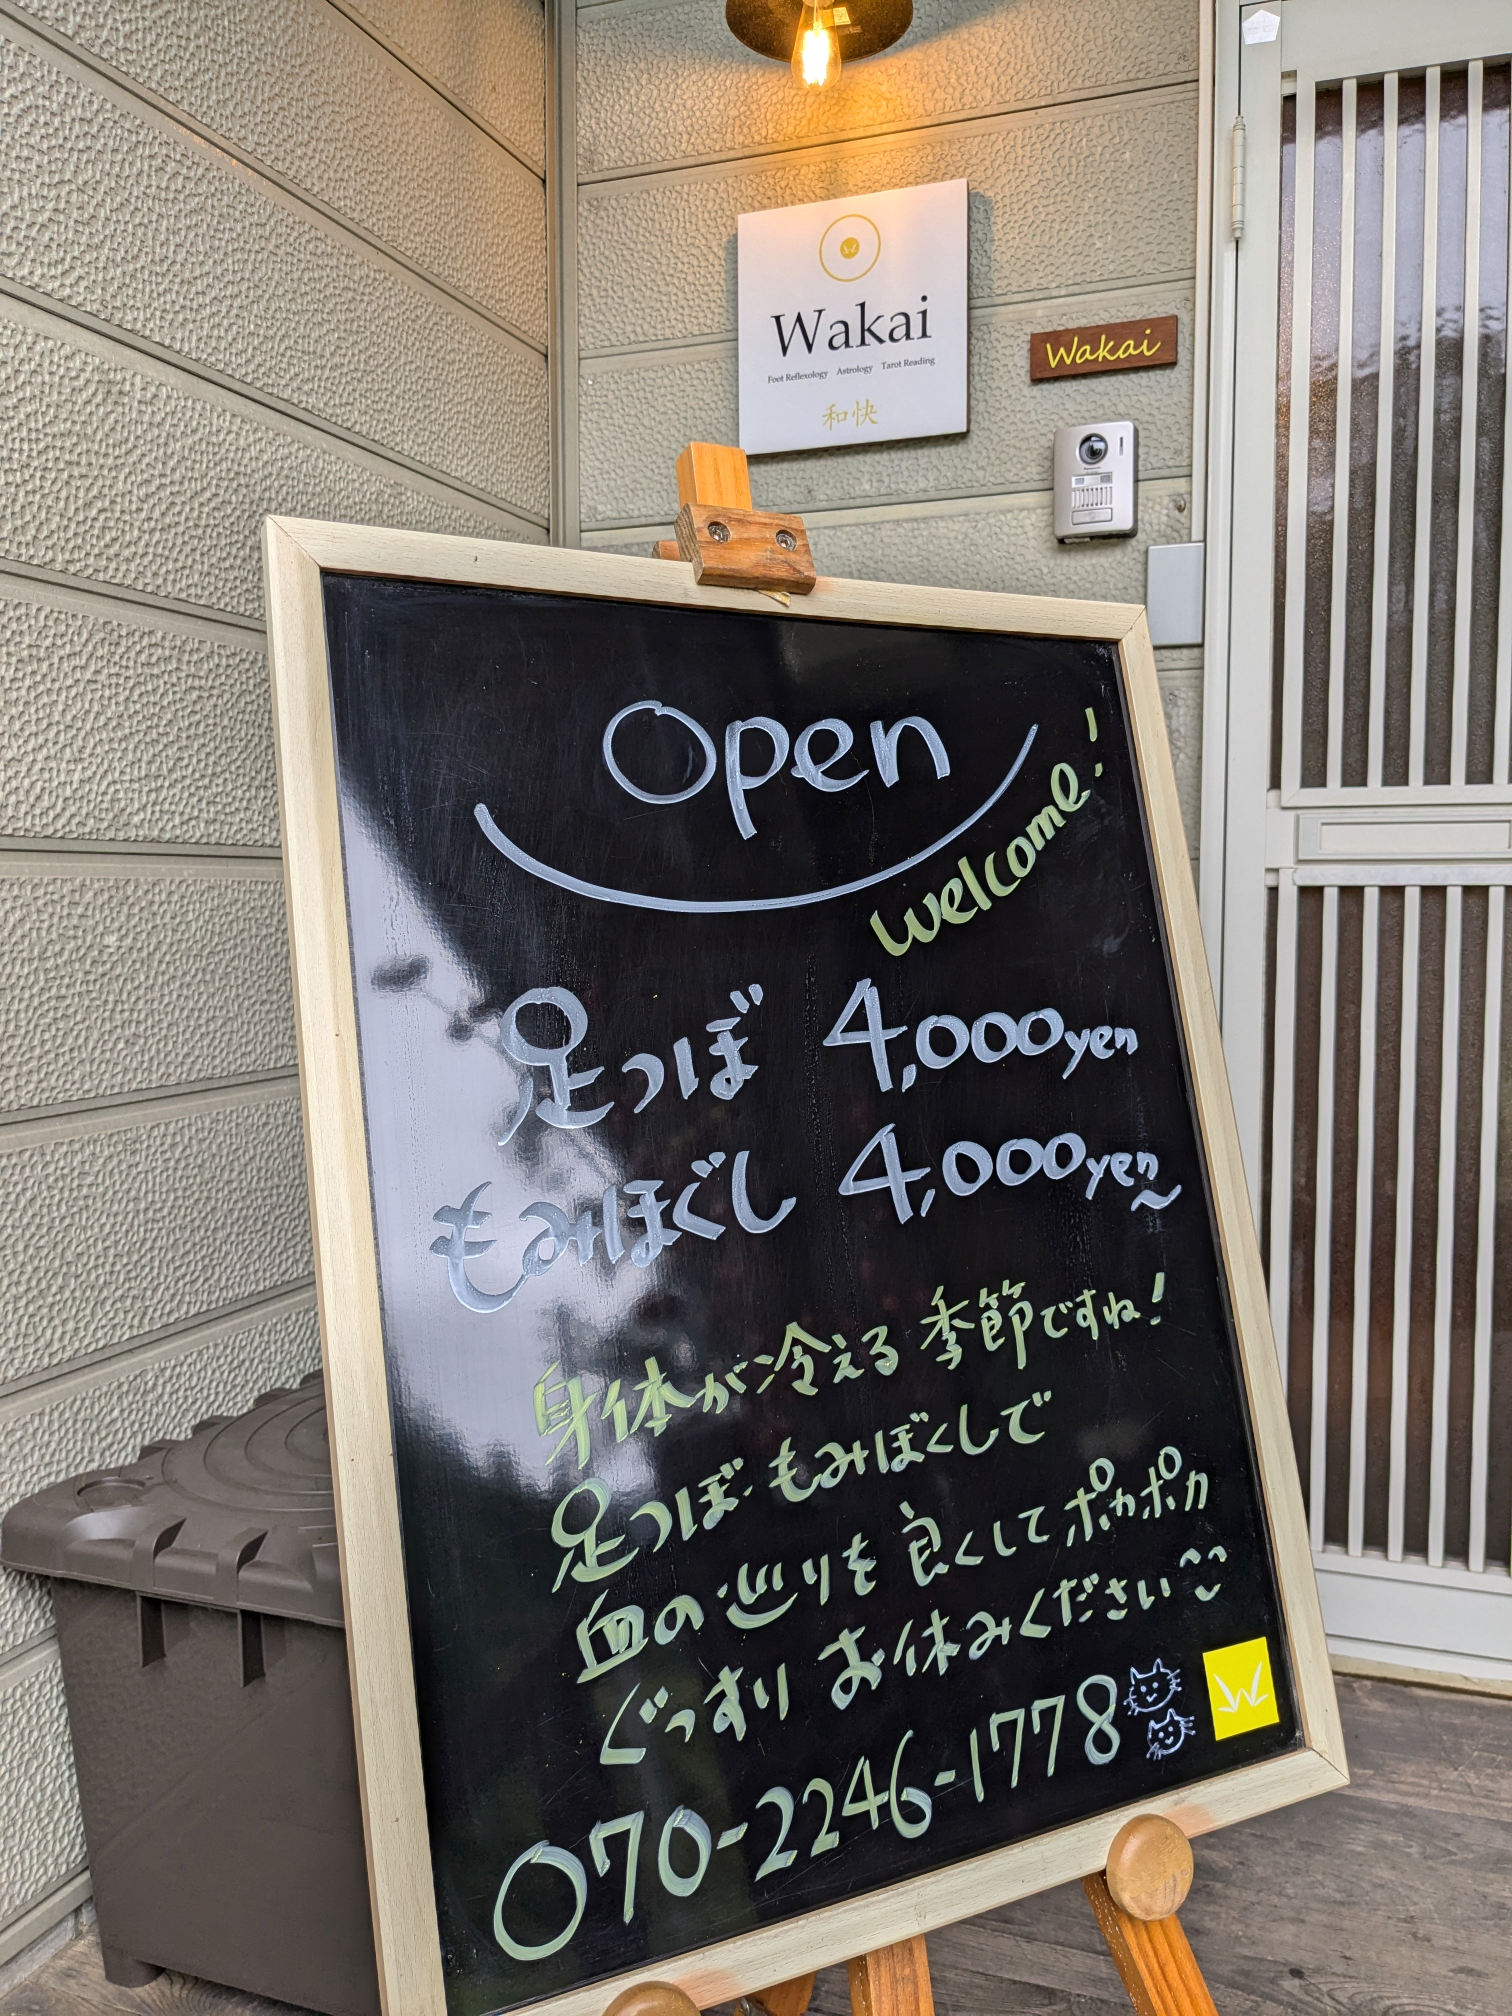 Wakai
Foot Reflexology Astrology Tarot Reading
和快
Wakai
Open
Welcome!
足つぼ 4,000yen
もみほぐし 4,000yen〜
身体が冷える季節ですね!
足つぼ・もみほぐしで
血の巡りを良くしてポカポカ
ぐっすりお休みください^^
070-2246-1778
W